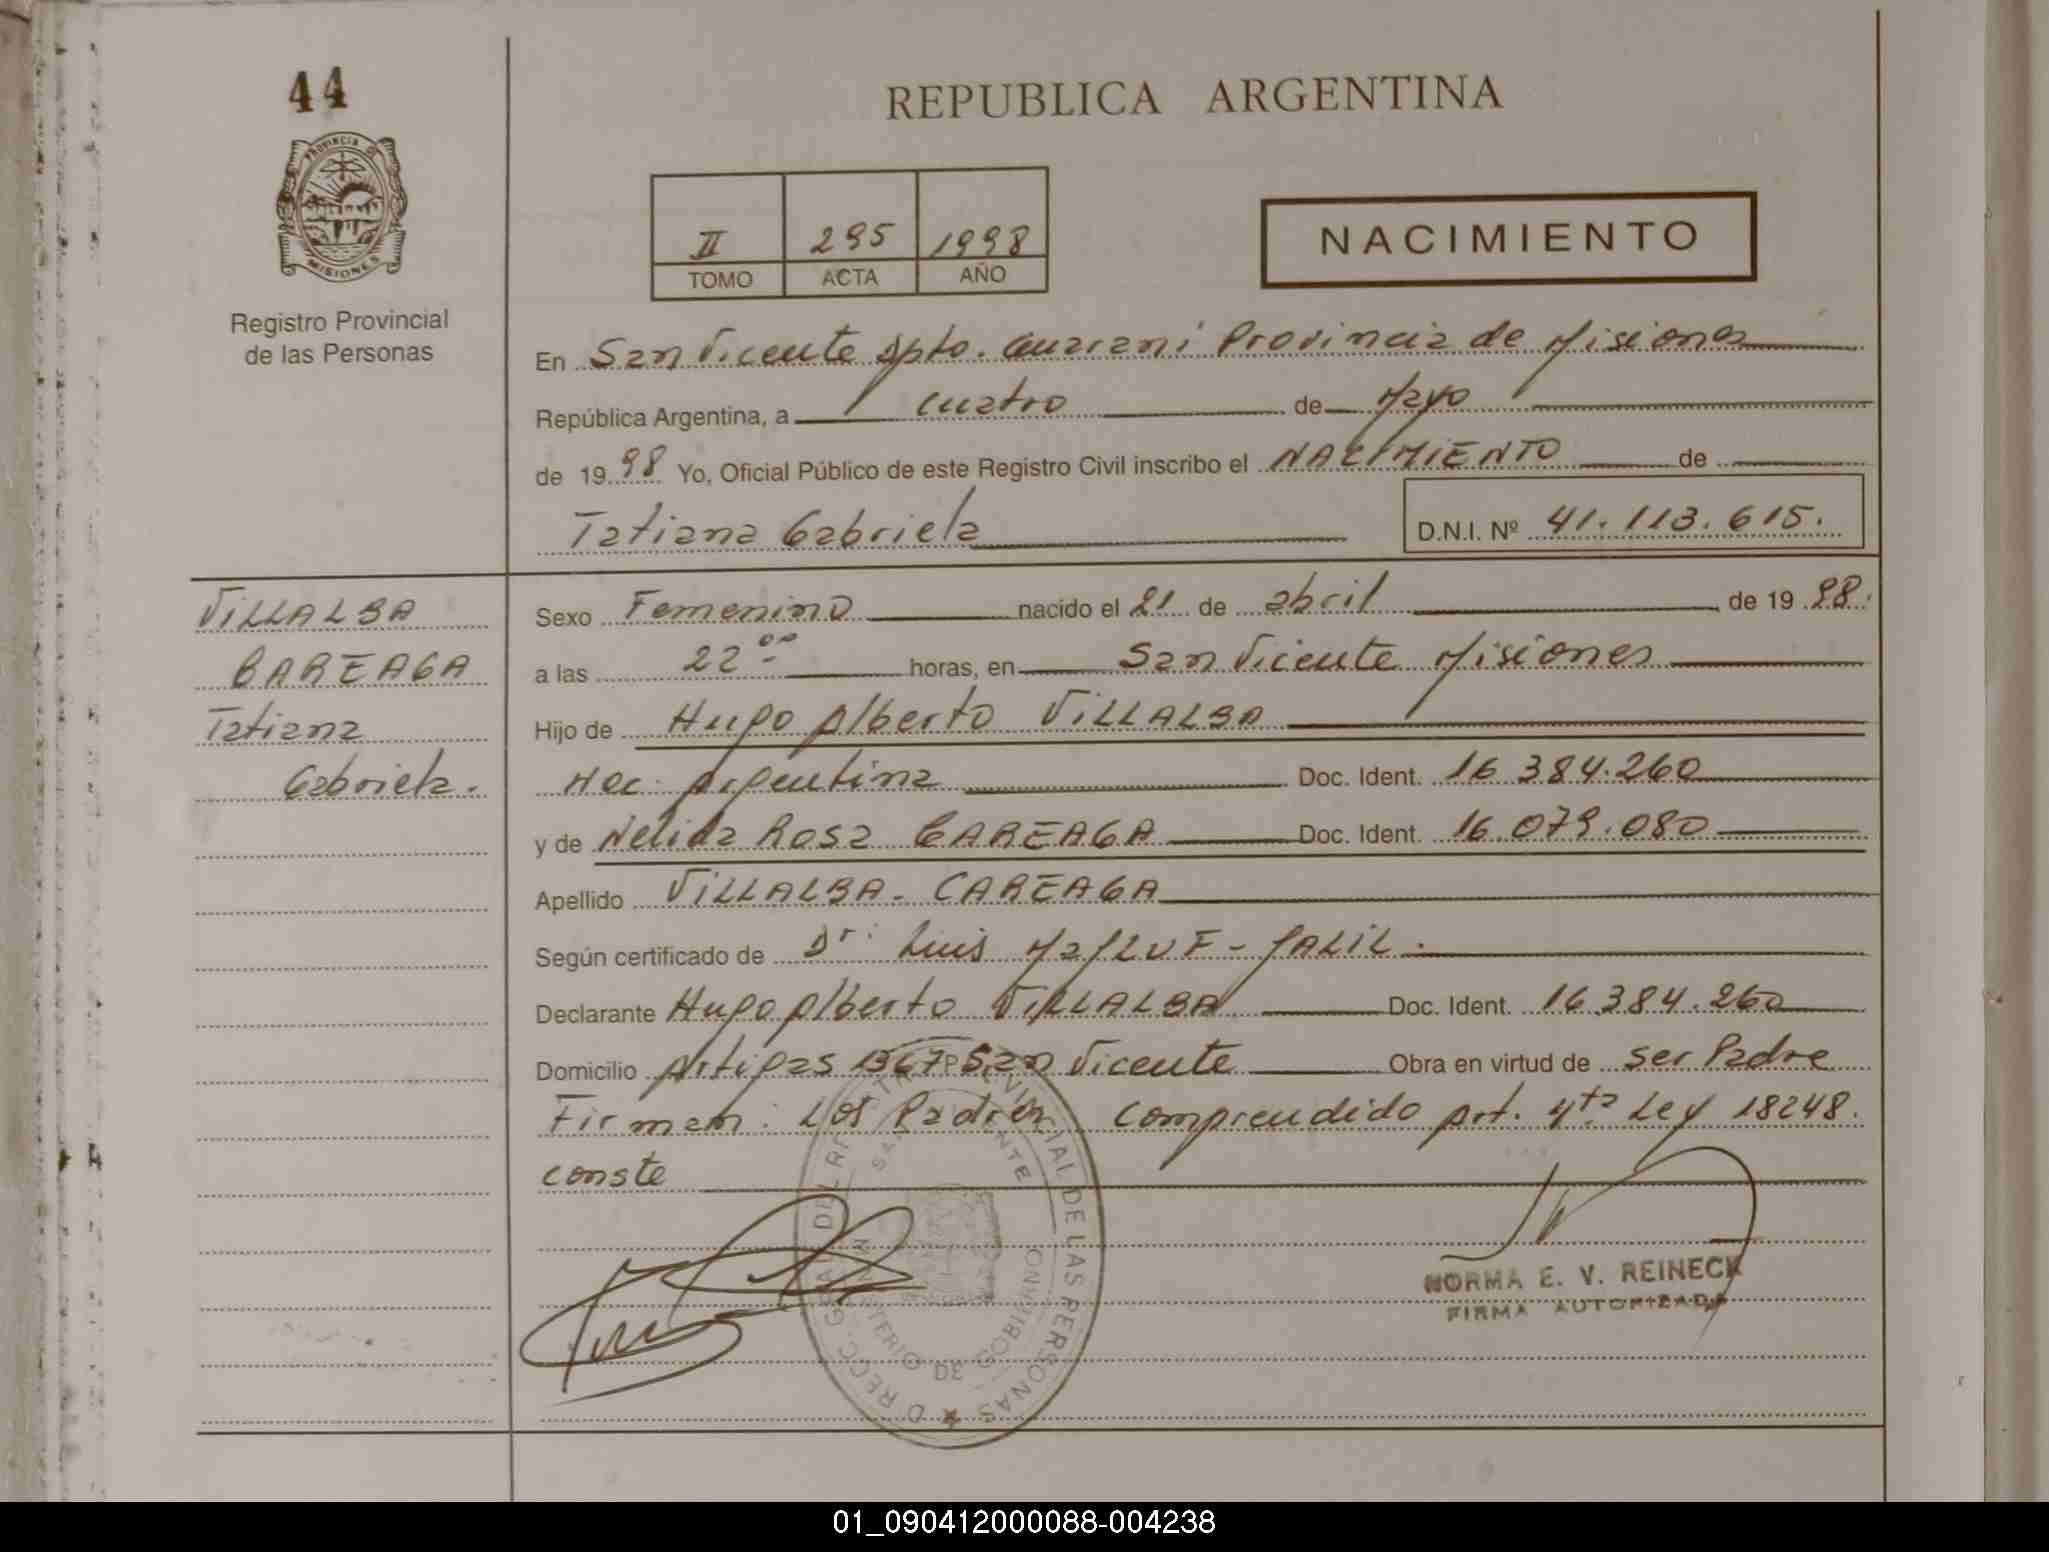 44
REPUBLICA ARGENTINA
PROVINCIA DE
MISIONES
Registro Provincial
de las Personas
II 295 1998
TOMO ACTA AÑO
NACIMIENTO
En San Vicente Dpto. Guarani Provincia de Misiones
República Argentina, a cuatro de Mayo
de 1998 Yo, Oficial Público de este Registro Civil inscribo el NACIMIENTO de
Tatiana Gabriela D.N.I. Nº 41.113.615.
VILLALBA
CAREAGA
Tatiana
Gabriela.
Sexo Femenino nacido el 21 de abril de 1998.
a las 22 ºº horas, en San Vicente Misiones
Hijo de Hugo Alberto VILLALBA
Nac. Argentina Doc. Ident. 16 384.260
y de Nelida Rosa CAREAGA Doc. Ident. 16.079.080
Apellido VILLALBA - CAREAGA
Según certificado de Dr. Luis
Declarante Hugo Alberto VILLALBA Doc. Ident. 16.384.260
Domicilio Artigas 1367 San Vicente Obra en virtud de ser Padre
Firman: Los Padres Comprendido Art. 4ta Ley 18248.
conste
DE LAS PERSONAS
MINISTERIO DE GOBIERNO
NORMA E. V. REINECK
FIRMA AUTORIZADA
01_090412000088-004238